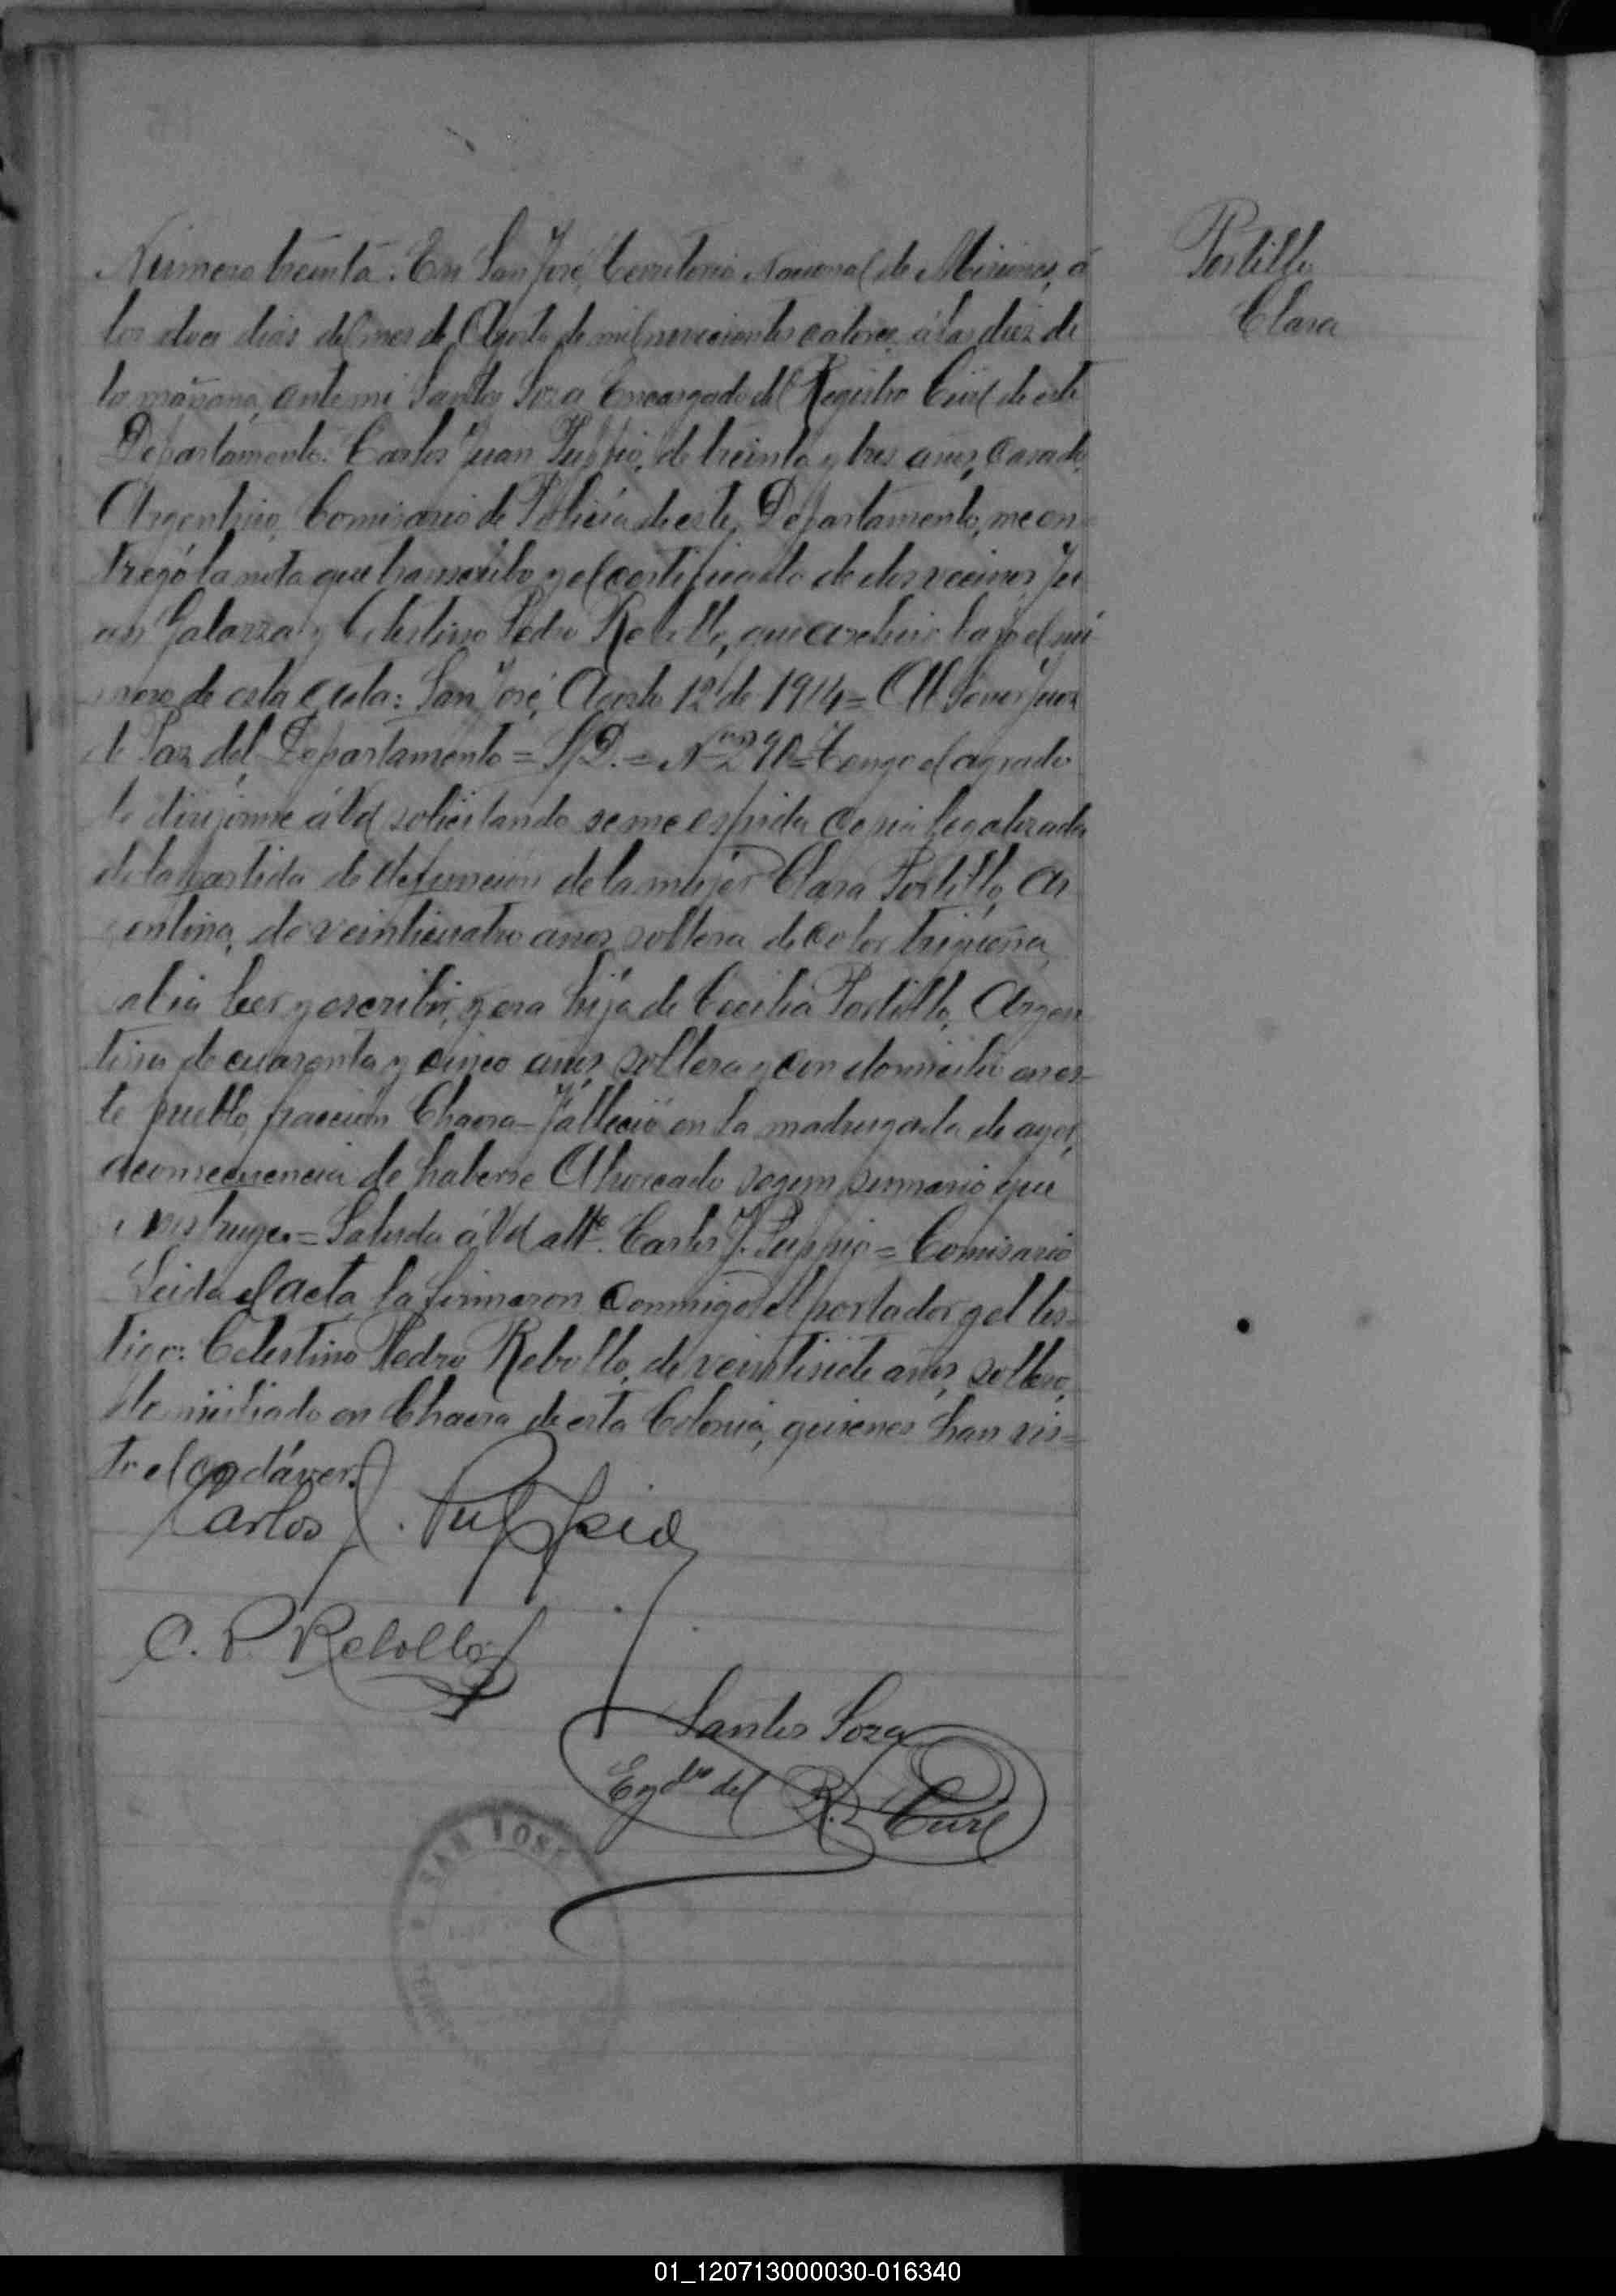 Número treinta. En San José, Territorio Nacional de Misiones, á
los doce dias del mes de Agosto de mil novecientos catorce, á las diez de
la mañana, ante mi Santos Soza Encargado del Registro Civil de este
Departamento: Carlos Juan Puppio, de treinta y tres años, casado,
Argentino, Comisario de Policía de este Departamento, me en-
tregó la nota que transcribo y el certificado de dos vecinos Ju-
an Galarza y Celestino Pedro Rebollo, que archivo bajo el nú-
mero de esta acta: San José, Agosto 12 de 1914 = Al Señor Juez
de Paz del Departamento = S/D. = Nº 290 = Tengo el agrado
de dirijirme á Vd solicitando se me espida copia legalizada
de la partida de defunción de la mujer Clara Portillo, Ar-
gentina, de veinticuatro años, soltera de color trigueña,
sabia leer y escribir, y era hija de Cecilia Portillo, Argen-
tina de cuarenta y cinco años, soltera y con domicilio en es-
te pueblo, fraccion Chacra - Falleció en la madrugada de ayer,
a consecuencia de haberse Ahorcado segun sumario que
instruyo. = Saluda á Vd atte. Carlos J. Puppio = Comisario
Leida el acta, la firmaron conmigo el portador y el tes-
tigo: Celestino Pedro Rebollo, de veintisiete años, soltero,
domiciliado en Chacra de esta Colonia, quienes han vis-
to el cadáver.
Carlos J. Puppio
C. P. Rebollo
Santos Soza
Egdo del R. Civil
SAN JOSE
Portillo
Clara
01_120713000030-016340